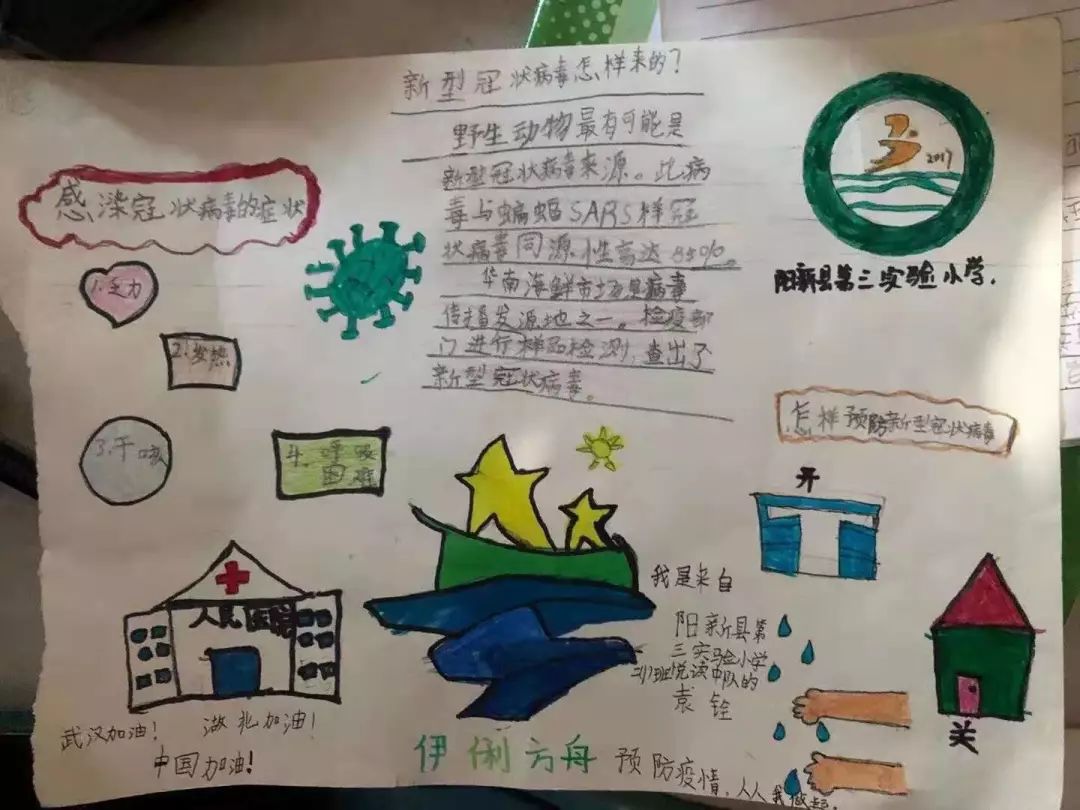 新型冠状病毒怎样来的？
野生动物最有可能是
新型冠状病毒来源。此病
毒与蝙蝠SARS样冠
状病毒同源性高达85%。
华南海鲜市场是病毒
传播发源地之一。检疫部
门进行样品检测，查出了
新型冠状病毒。
感染冠状病毒的症状
1.乏力
2.发热
3.干咳
4.呼吸
困难
2017
阳新县第三实验小学.
怎样预防新型冠状病毒
开
关
人民医院
武汉加油！
湖北加油！
中国加油！
我是来自
阳新县第
三实验小学
班悦读中队的
袁铨
伊俐方舟
预防疫情，人人